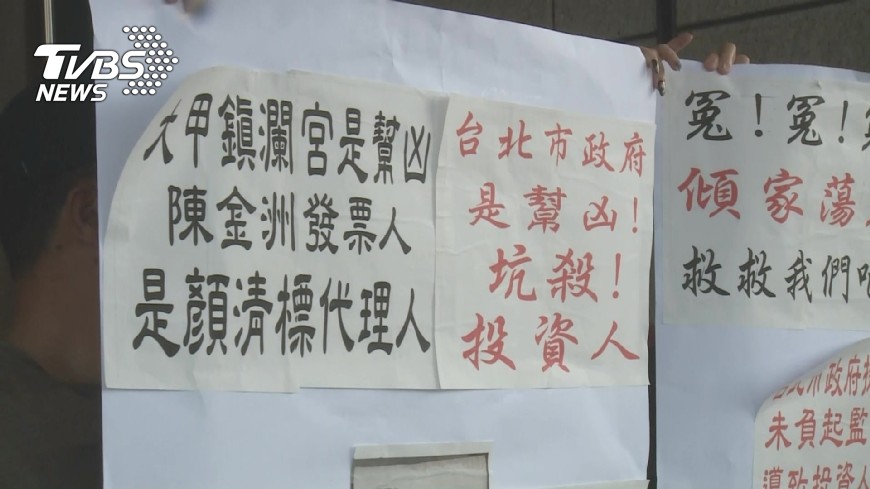 TVBS
NEWS
大甲鎮瀾宮是幫凶
陳金洲發票人
是顏清標代理人
台北市政府
是幫凶！
坑殺！
投資人
冤！冤！
傾家蕩
救救我們
市政府
未負起監
導致投資人